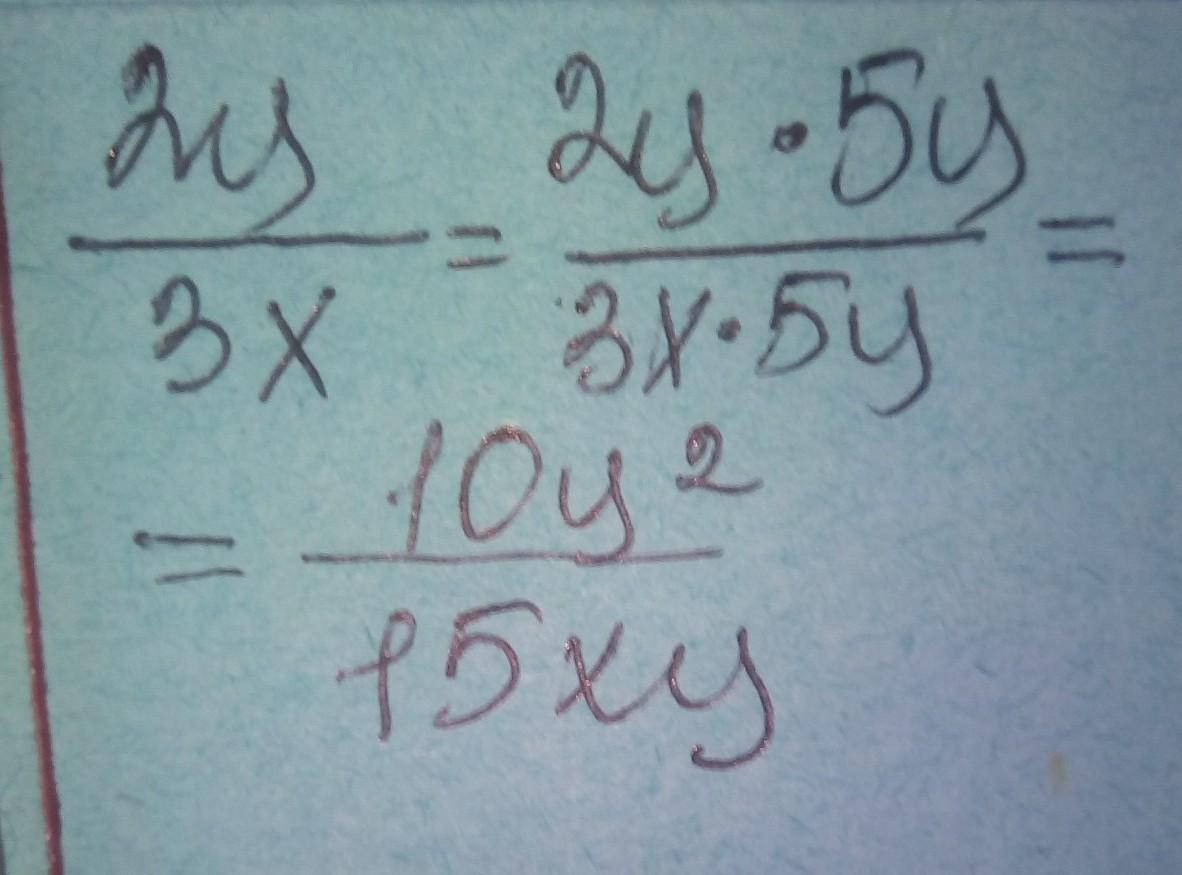 2y/3x = 2y · 5y/3x · 5y =
= 10y²/15xy